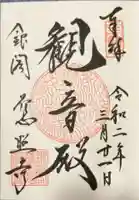 奉拝
令和二年
三月廿一日
観音殿
銀閣
慈照寺